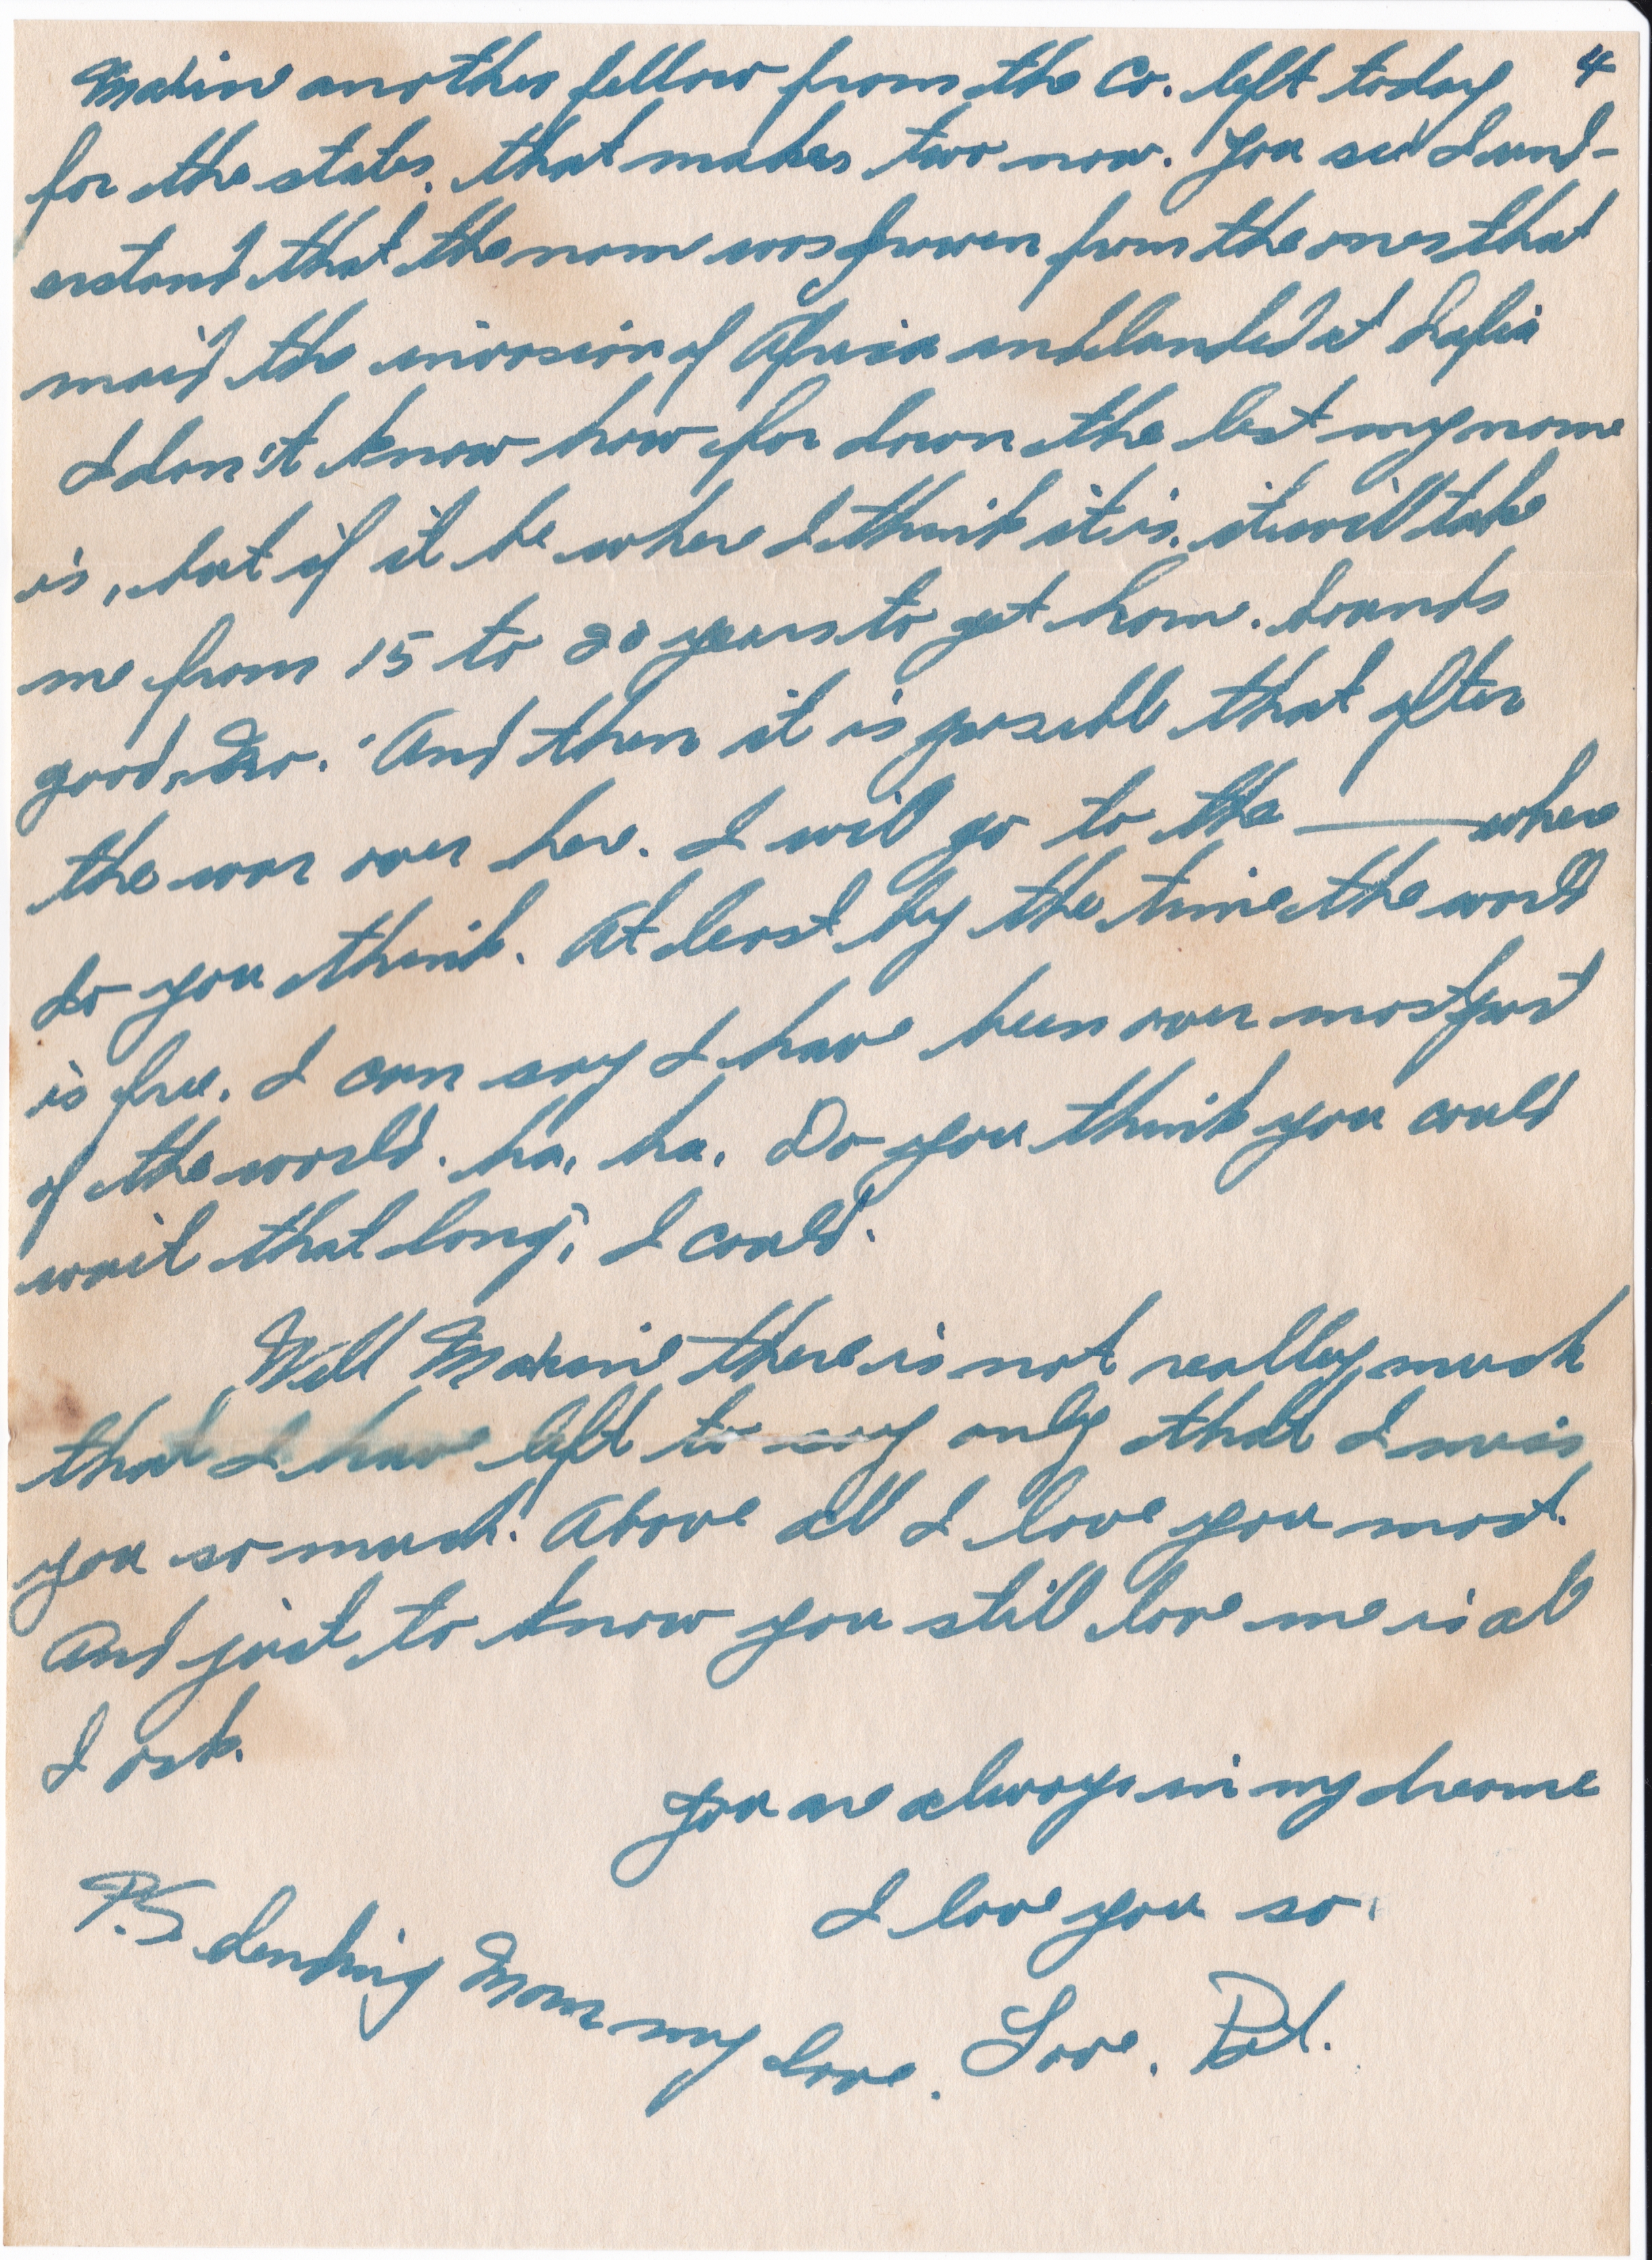 4
Maxine another fellow from the Co. left today
for the states, that makes two now. You see I und-
erstand that the name was drawen from the ones that
maid the invasion of Africa and landed at Safia
I don't know how far down the list my name
is, but if it be where I think it is, it will take
me from 15 to 20 years to get home. Sounds
good, And then it is possible that after
the war over here. I will go to the ——— where
do you think. At least by the time the world
is free. I can say I have been over most part
of the world. ha, ha. Do you think you could
wait that long, I could.
Well Maxine there is not really much
that I have left to say only that I miss
you so much. Above all I love you most.
And just to know you still love me is all
I ask.
You are always in my dreams
I love you so.
P.S. Sending Mom my love. Love, Pat.